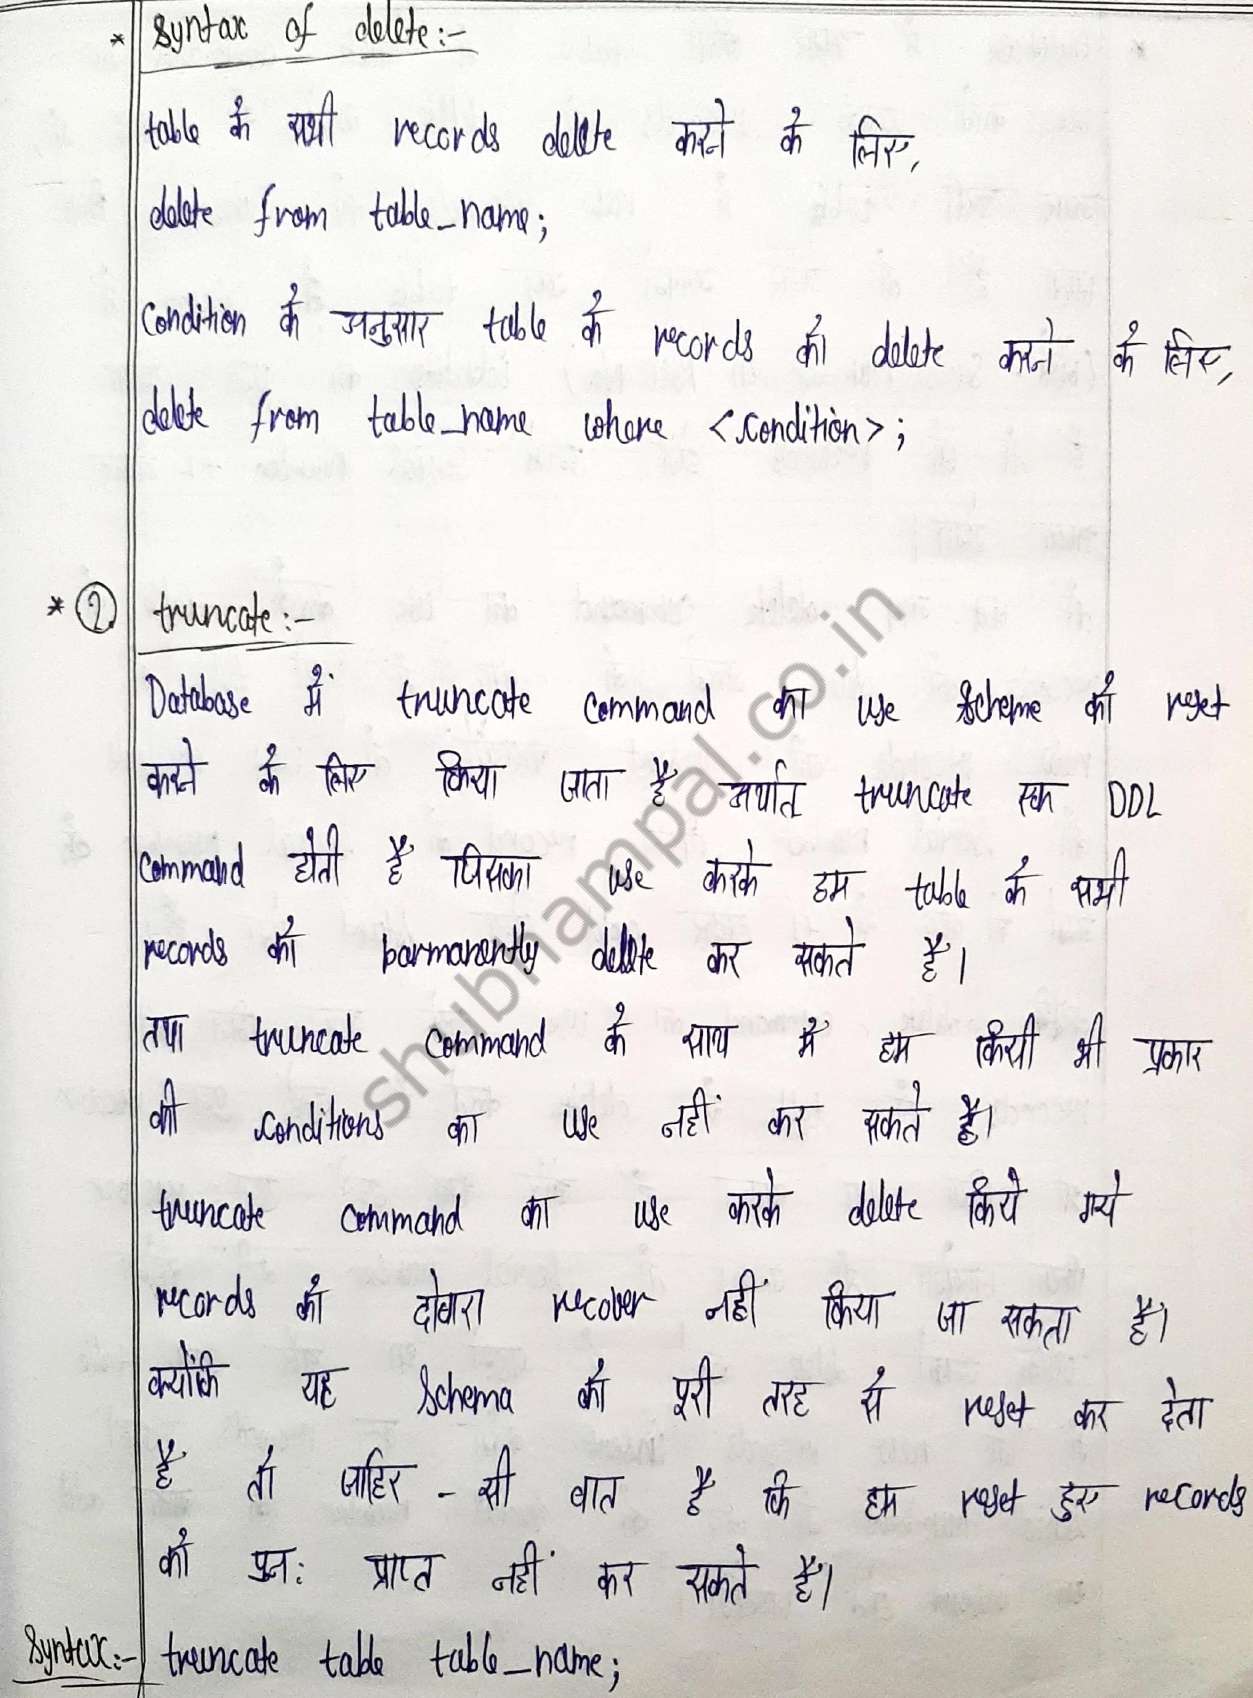 * Syntax of delete:-
table के सभी records delete करने के लिए,
delete from table_name;
Condition के अनुसार table के records को delete करने के लिए,
delete from table_name where <condition>;
* 2 truncate:-
Database में truncate command का use scheme को reset
करने के लिए किया जाता है अर्थात् truncate एक DDL
command होती है जिसका use करके हम table के सभी
records को parmanently delete कर सकते है।
तथा truncate command के साथ में हम किसी भी प्रकार
की conditions का use नहीं कर सकते है।
truncate command का use करके delete किये गये
records को दोबारा recover नहीं किया जा सकता है।
क्योंकि यह schema को पूरी तरह से reset कर देता
है तो जाहिर - सी बात है कि हम reset हुए records
को पुन: प्राप्त नहीं कर सकते है।
Syntax:- truncate table table_name;
shubhampal.co.in